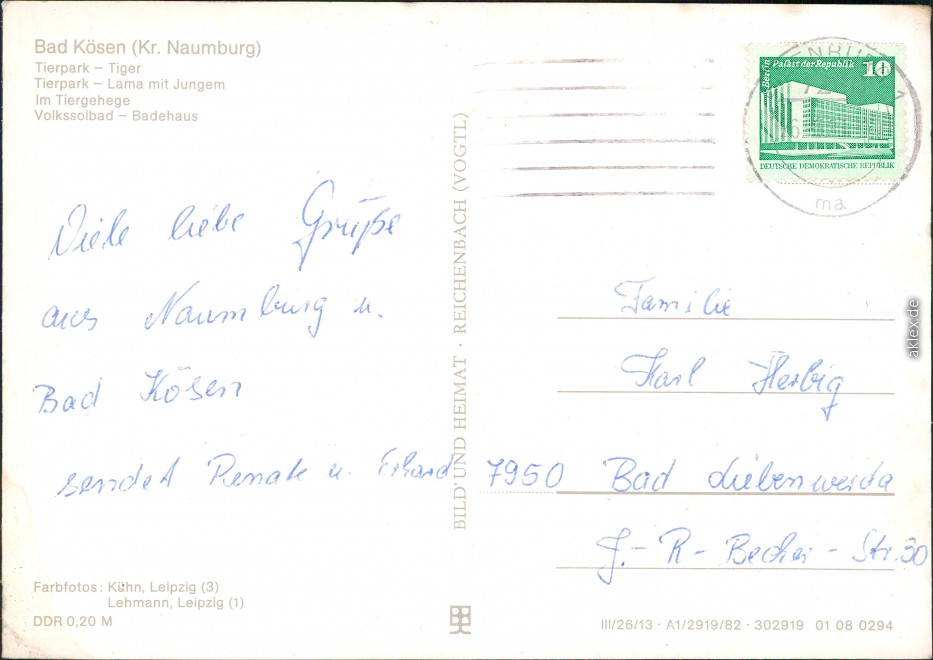 Bad Kösen (Kr. Naumburg)
Tierpark – Tiger
Tierpark – Lama mit Jungem
Im Tiergehege
Volkssolbad – Badehaus
Viele liebe Grüße
aus Naumburg u.
Bad Kösen
sendet Renate u. Erhard
Farbfotos: Kühn, Leipzig (3)
Lehmann, Leipzig (1)
DDR 0,20 M
BILD UND HEIMAT · REICHENBACH (VOGTL)
Berlin Palast der Republik 10
DEUTSCHE DEMOKRATISCHE REPUBLIK
ma
Familie
Karl Herbig
7950 Bad Liebenwerda
J.-R-Becher-Str. 30
III/26/13 · A1/2919/82 · 302919 01 08 0294
aklex.de